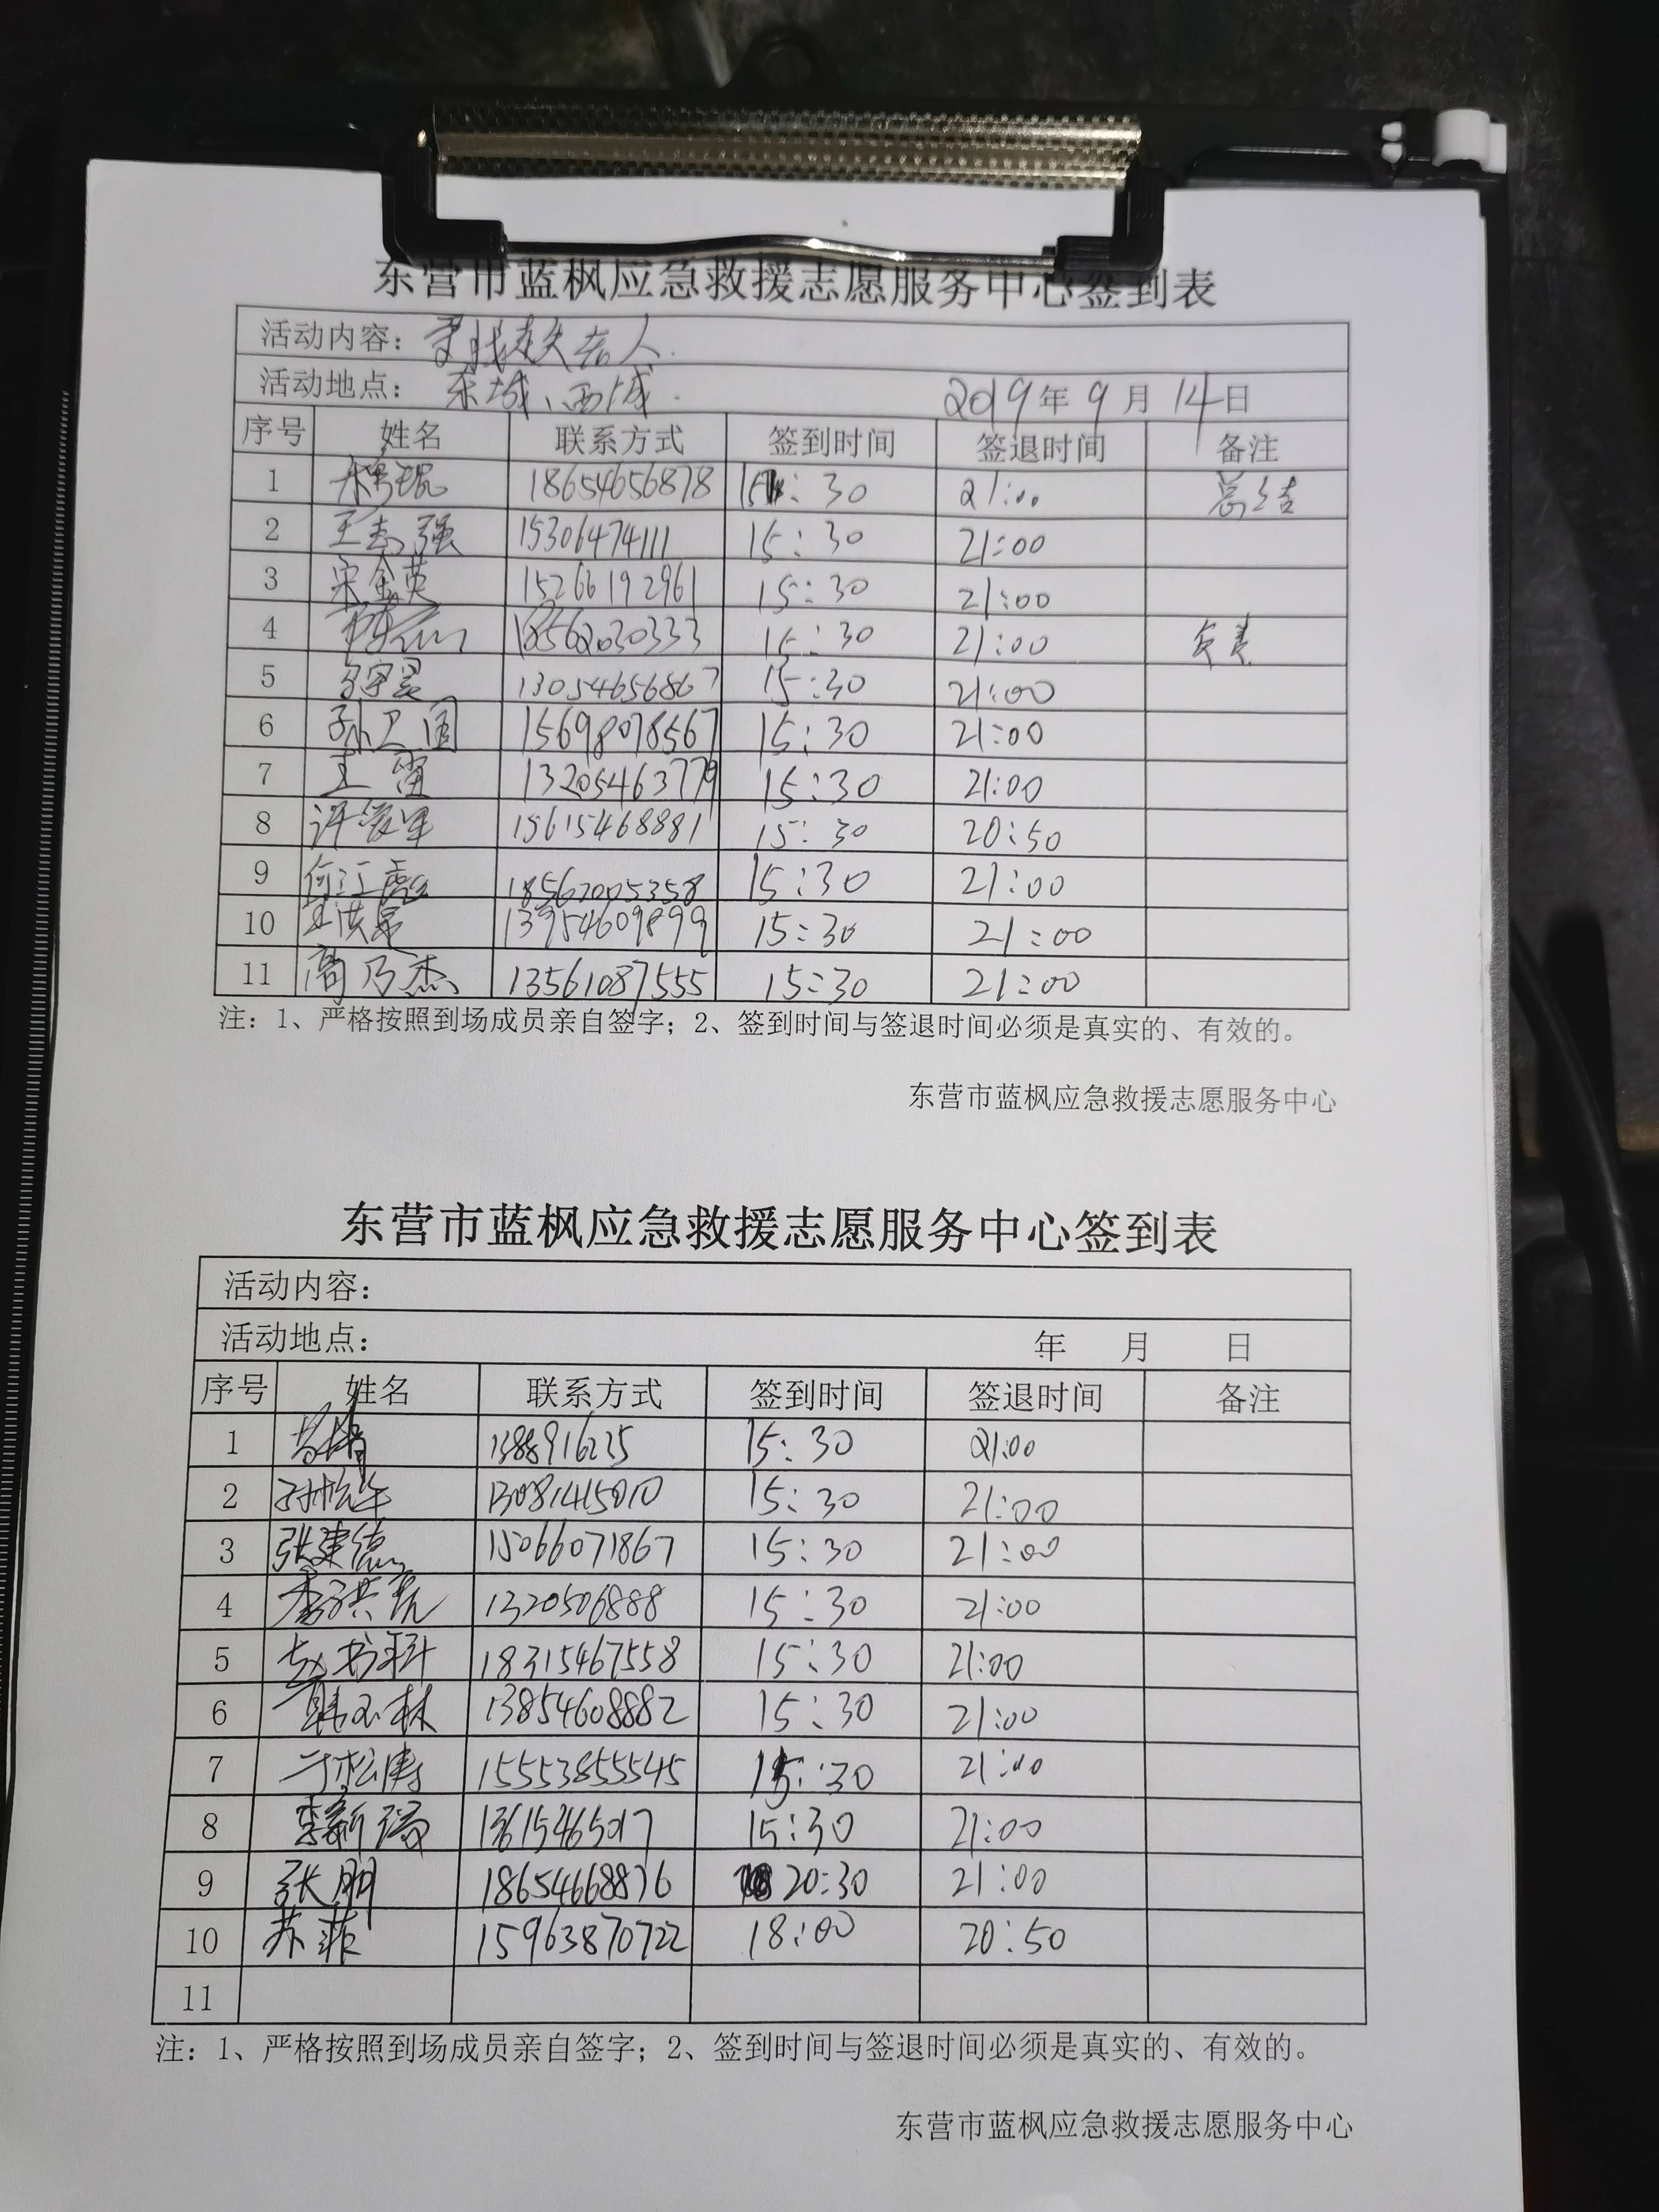 东营市蓝枫应急救援志愿服务中心签到表
活动内容：寻找走失老人.
活动地点：东城、西城. 2019年9月14日
序号 姓名 联系方式 签到时间 签退时间 备注
1 18654656878 15:30 21:00 总结
2 王志强 15306474111 15:30 21:00
3 宋金英 15266192961 15:30 21:00
4 18562030333 15:30 21:00
5 13054656867 15:30 21:00
6 孙卫国 15698078567 15:30 21:00
7 王雷 13205463779 15:30 21:00
8 许俊军 15615468881 15:30 20:50
9 18562005358 15:30 21:00
10 王洪泉 13954609899 15:30 21:00
11 高乃杰 13561087555 15:30 21:00
注：1、严格按照到场成员亲自签字；2、签到时间与签退时间必须是真实的、有效的。
东营市蓝枫应急救援志愿服务中心
东营市蓝枫应急救援志愿服务中心签到表
活动内容：
活动地点： 年 月 日
序号 姓名 联系方式 签到时间 签退时间 备注
1 15:30 21:00
2 13081415010 15:30 21:00
3 张建德 15066071867 15:30 21:00
4 1320506888 15:30 21:00
5 赵书科 18315467558 15:30 21:00
6 韩玉林 13854608882 15:30 21:00
7 于松涛 15553855545 15:30 21:00
8 李新瑞 13615465017 15:30 21:00
9 张朋 18654668876 20:30 21:00
10 苏菲 15963870722 18:00 20:50
11
注：1、严格按照到场成员亲自签字；2、签到时间与签退时间必须是真实的、有效的。
东营市蓝枫应急救援志愿服务中心